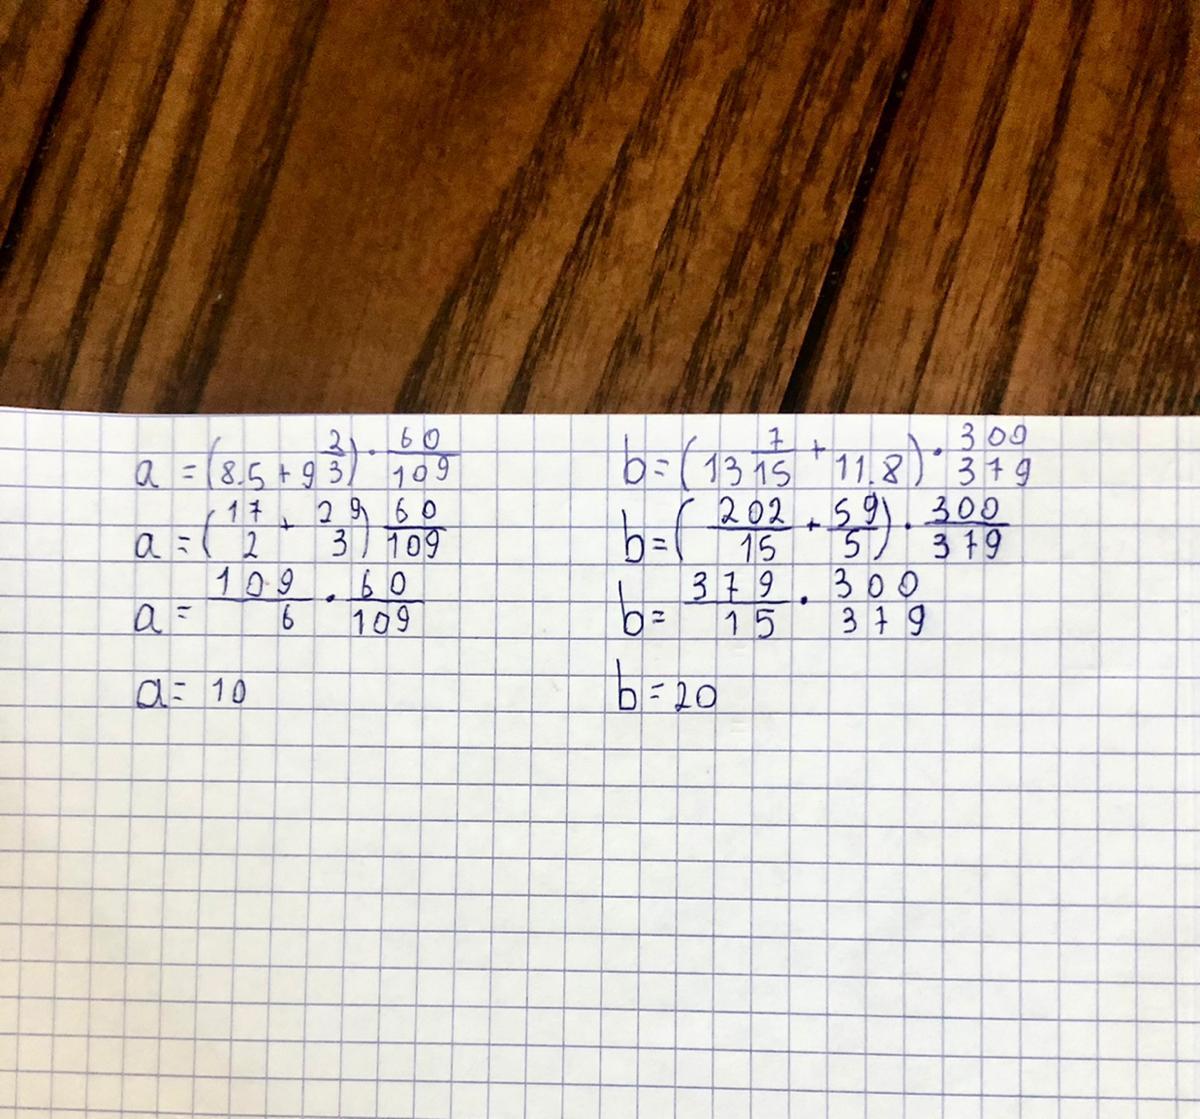 a = (8.5 + 9 2/3) · 60/109
a = (17/2 + 29/3) 60/109
a = 109/6 · 60/109
a = 10
b = (13 7/15 + 11.8) · 300/379
b = (202/15 + 59/5) · 300/379
b = 379/15 · 300/379
b = 20